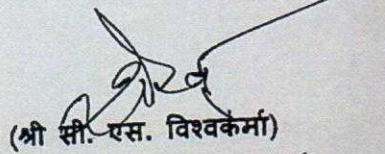 (श्री सी. एस. विश्वकर्मा)